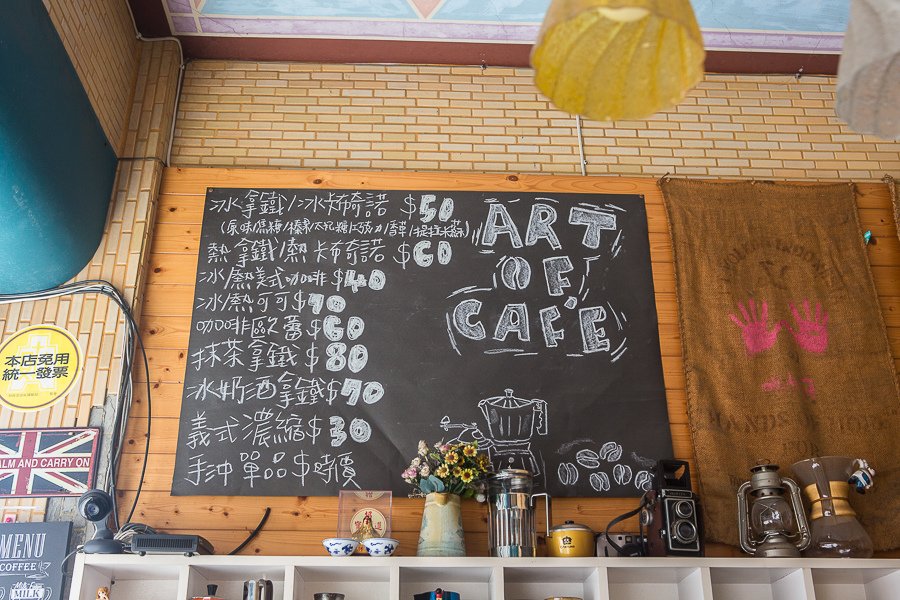 冰拿鐵/冰卡布奇諾 $50
(原味/焦糖/榛果/太妃糖/巧克力/香草/提拉米蘇)
熱拿鐵/熱卡布奇諾 $60
冰/熱美式咖啡 $40
冰/熱可可 $70
咖啡歐蕾 $60
抹茶拿鐵 $80
冰奶酒拿鐵 $70
義式濃縮 $30
手沖單品 $時價
ART
OF
CAFE
本店免用
統一發票
CALM AND CARRY ON
MENU
COFFEE
MILK